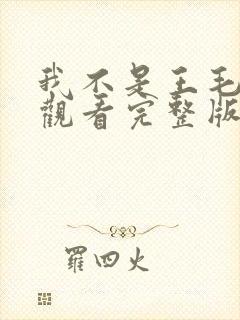 我不是王毛
觀看完整版
羅四火